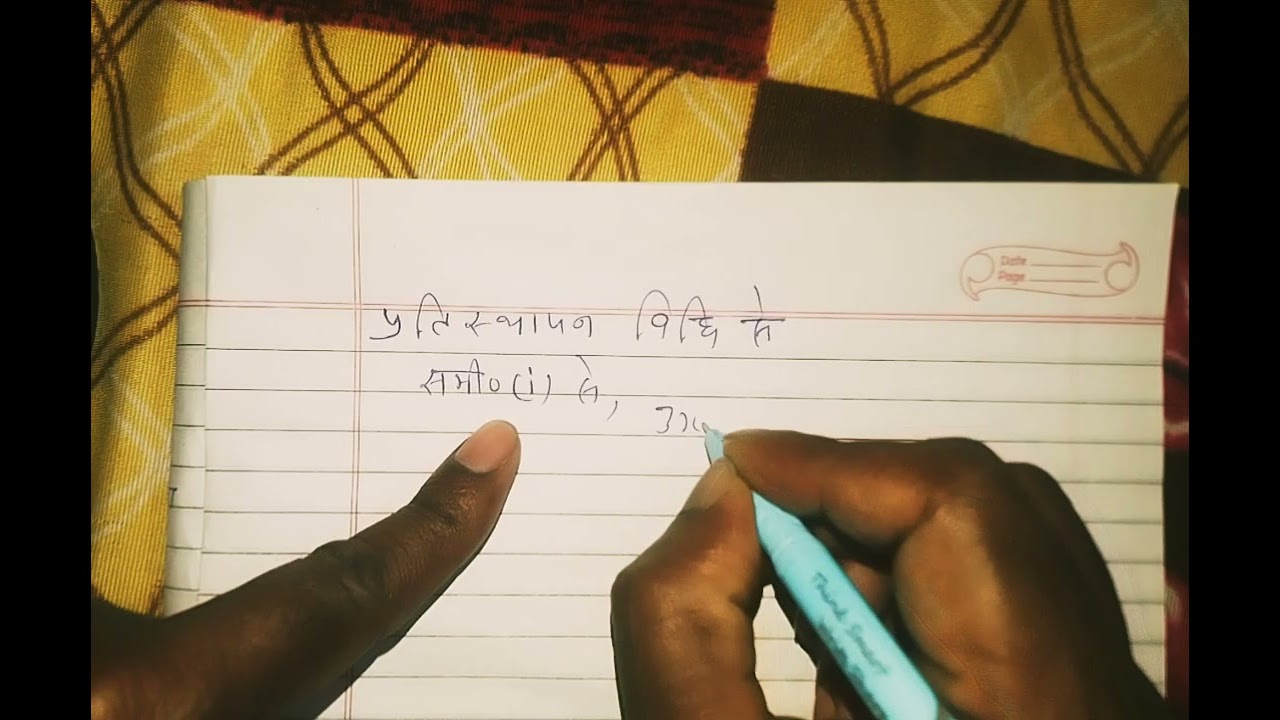 Date
Page
प्रतिस्थापन विधि से
समी०(i) से, 3x
Think Smart